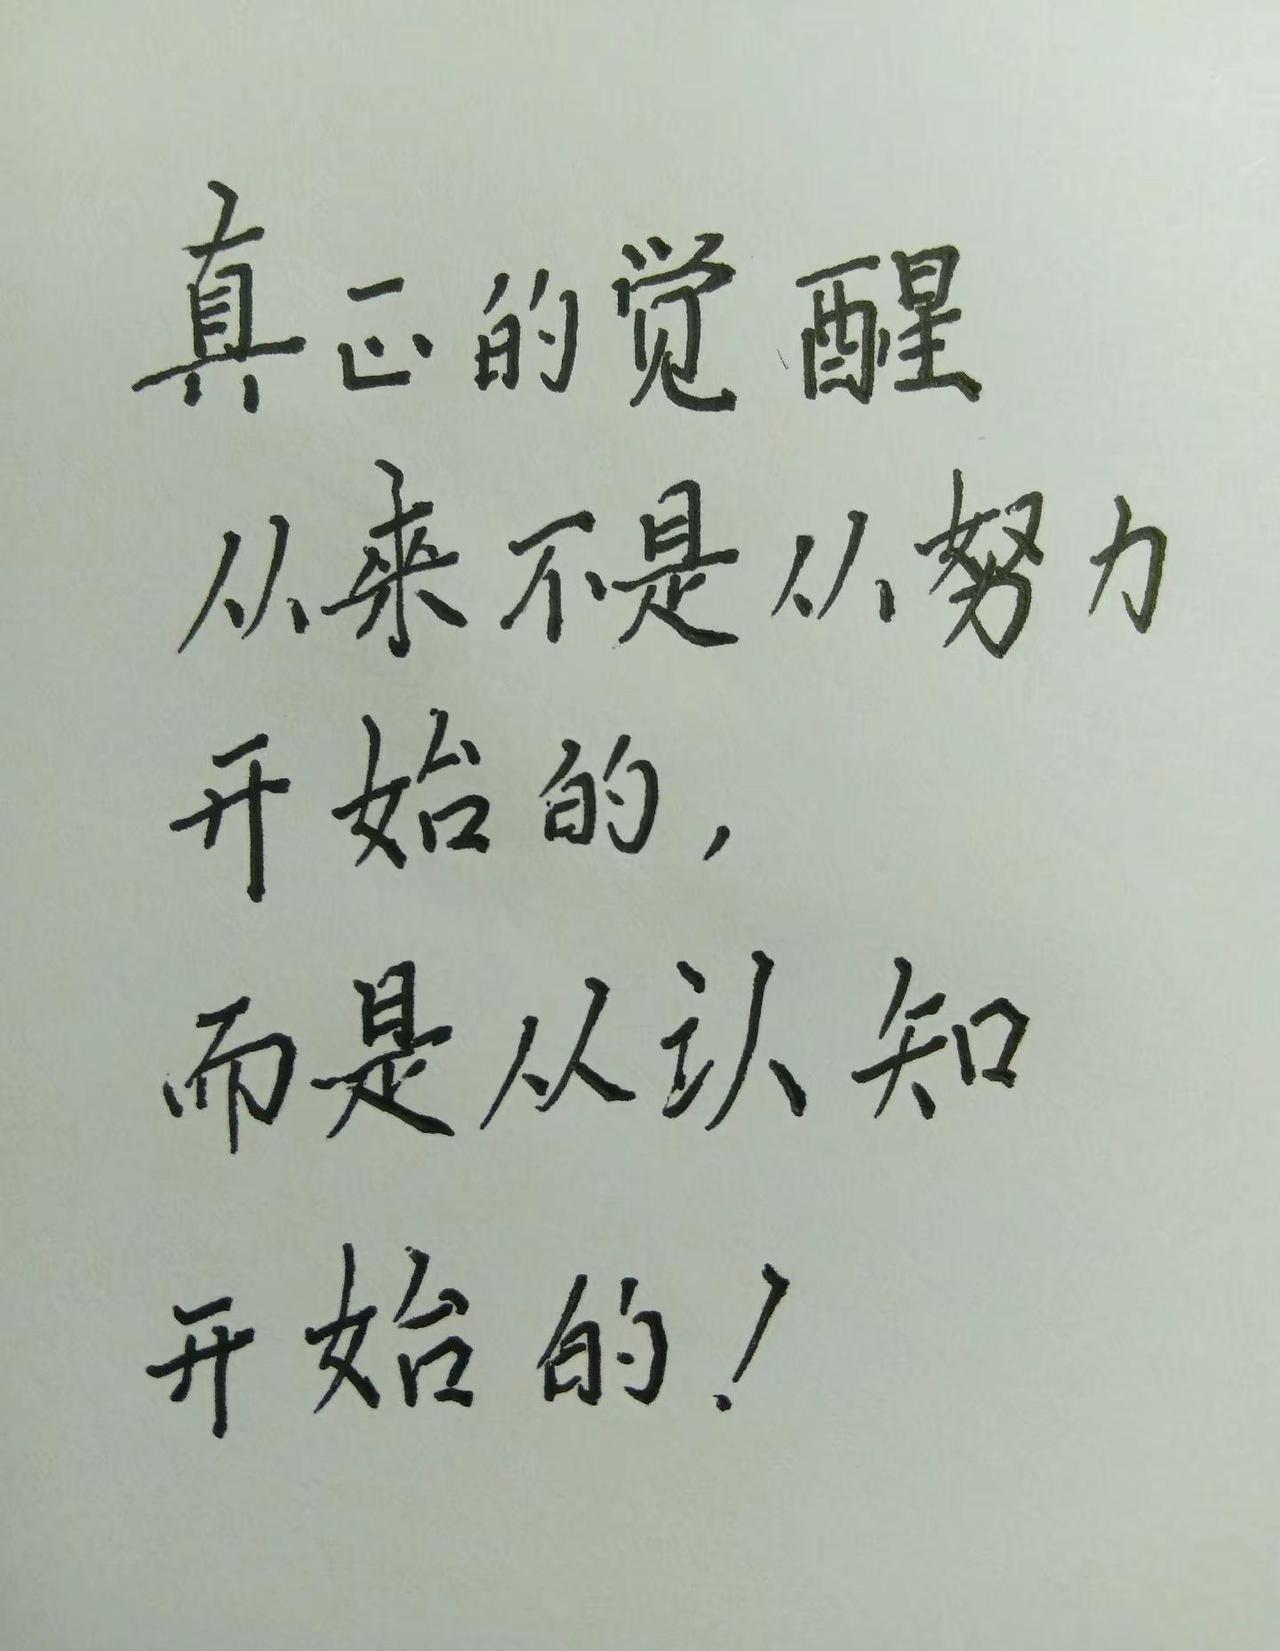 真正的觉醒
从来不是从努力
开始的，
而是从认知
开始的！